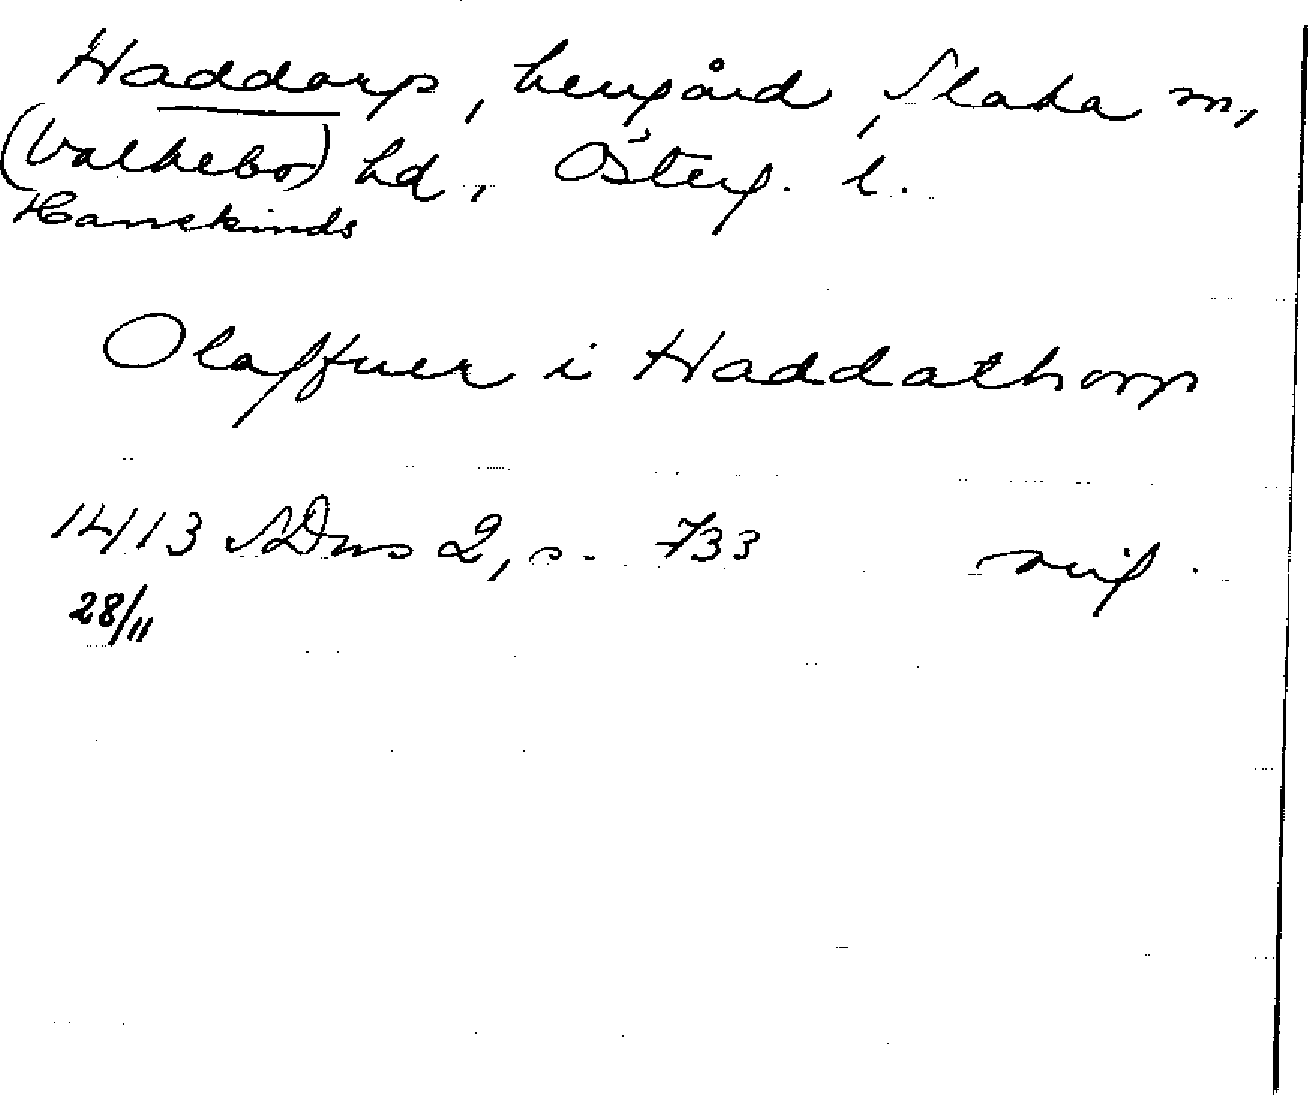 Haddorp, herrgård, Slaka sn,
(Valkebo) hd, Österg. l.
Hanekinds
Olaffuer i Haddathorp
1413 SDns 2, s. 733 orig.
28/11